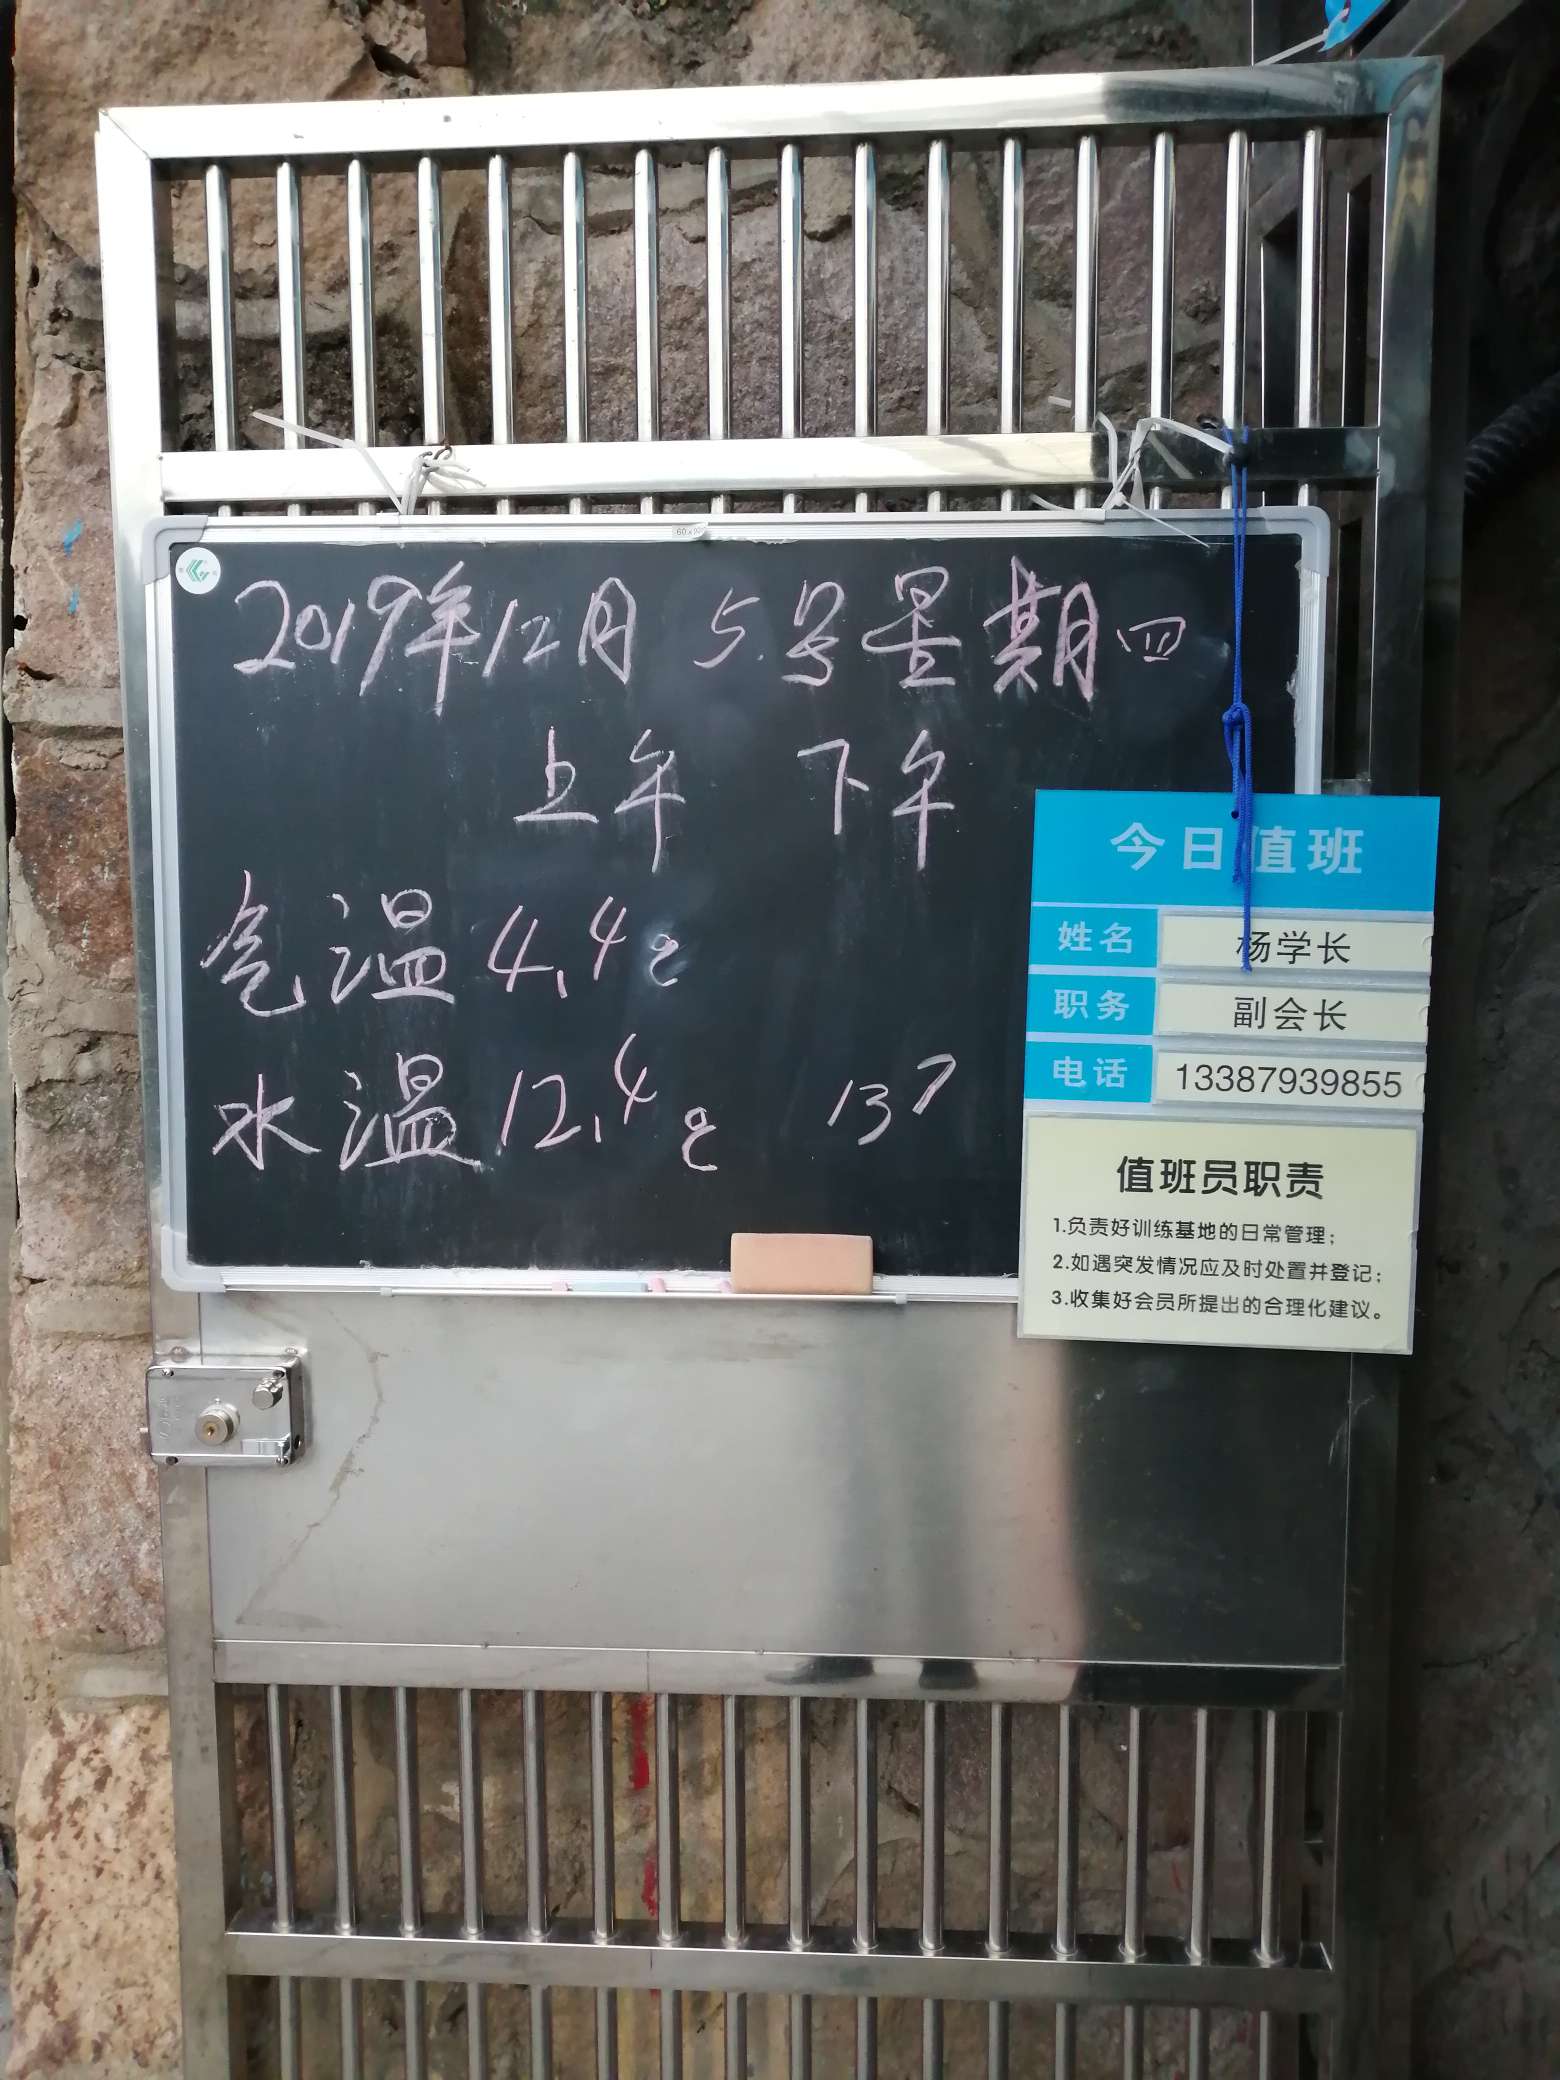 2019年12月5号星期四
上午 下午
气温 4.4℃
水温 12.4℃ 13.7
今日值班
姓名 杨学长
职务 副会长
电话 13387939855
值班员职责
1.负责好训练基地的日常管理;
2.如遇突发情况应及时处置并登记;
3.收集好会员所提出的合理化建议。